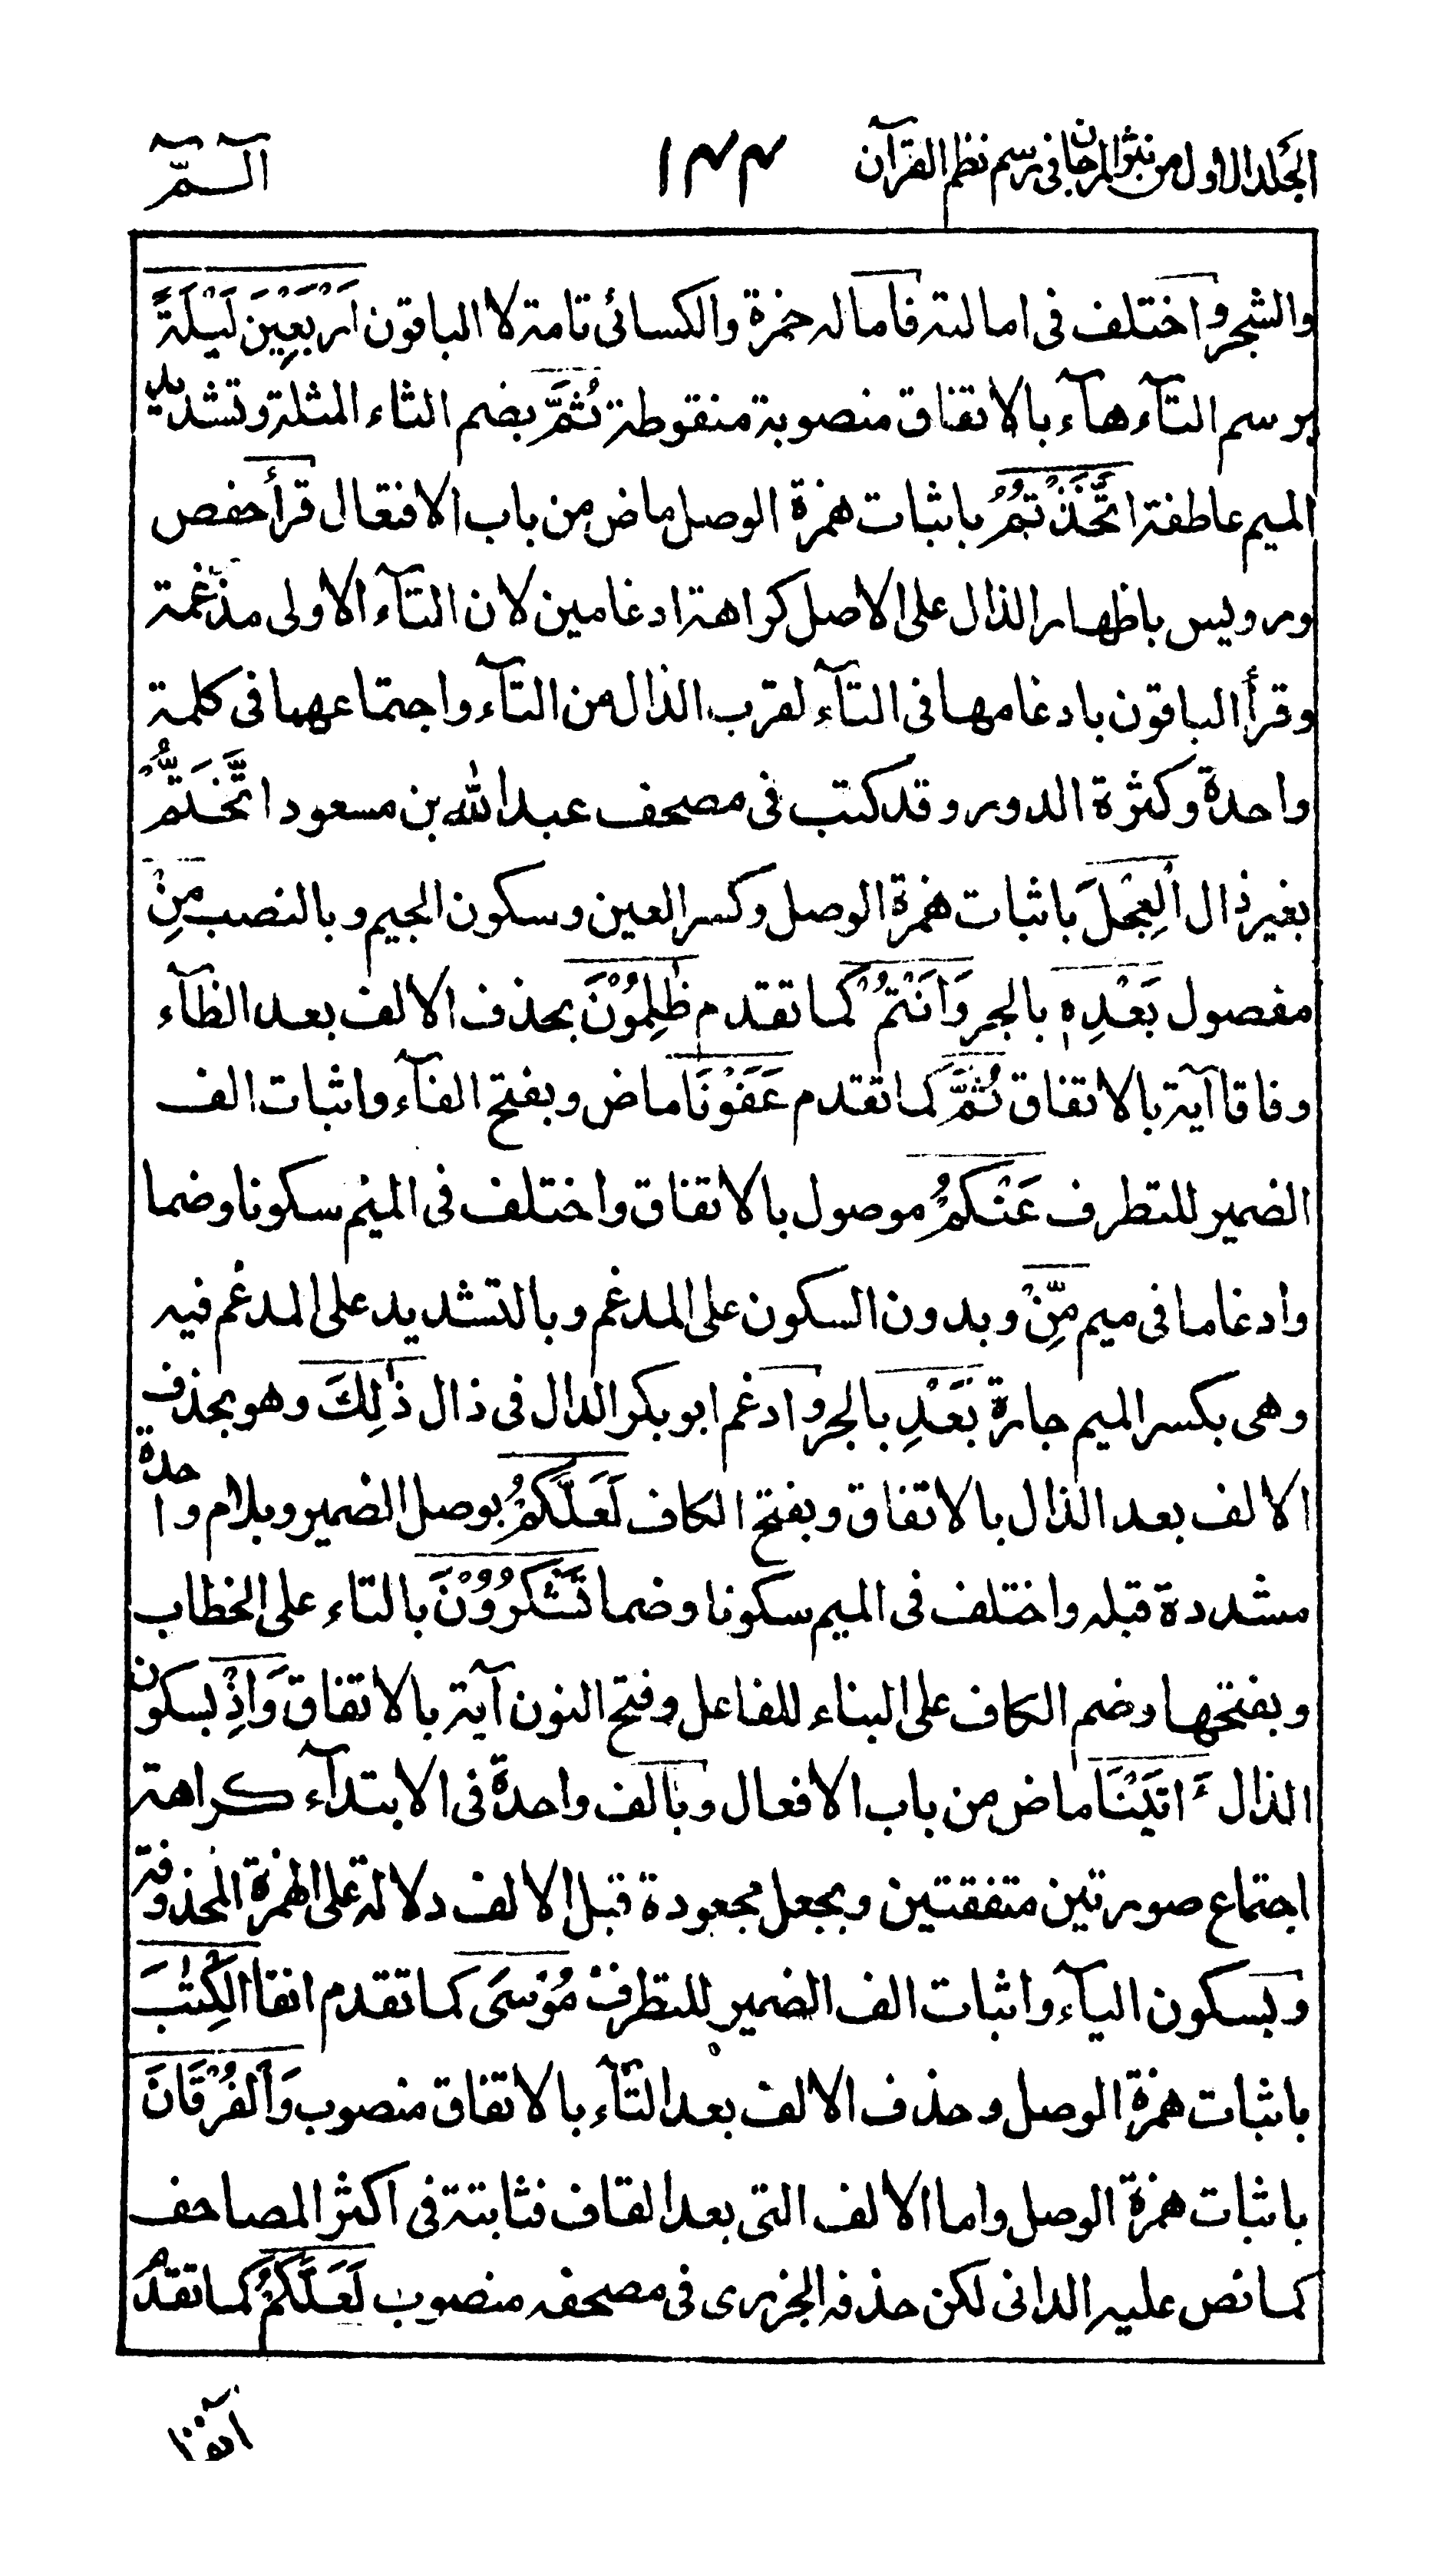 الجلد الاول من نثر المرجان فى رسم نظم القرآن ١٣٣ الٓـمّٓ
والشجر واختلف فى امالته فاماله حمزة والكسائى تامة لا الباقون اَرْبَعِيْنَ لَيْلَةً
برسم التآء هآء بالاتفاق منصوبة منقوطة ثُمَّ بضم الثاء المثلثة وتشديد
الميم عاطفة اتَّخَذْتُمُ باثبات همزة الوصل ماض من باب الافتعال قرأ حفص
ورويس باظهار الذال على الاصل كراهة ادغامين لان التآء الاولى مدغمة
وقرأ الباقون بادغامها فى التآء لقرب الذال من التآء واجتماعهما فى كلمة
واحدة وكثرة الدور وقد كتب فى مصحف عبد الله بن مسعود اتَّخَتُّمُ
بغير ذال الْعِجْلَ باثبات همزة الوصل وكسر العين وسكون الجيم وبالنصب مِنْ
مفصول بَعْدِهٖ بالجر وَاَنْتُمْ كما تقدم ظٰلِمُوْنَ بحذف الالف بعد الظآء
وفاقا آية بالاتفاق ثُمَّ كما تقدم عَفَوْنَا ماض وبفتح الفآء واثبات الف
الضمير للتطرف عَنْكُمْ موصول بالاتفاق واختلف فى الميم سكونا وضما
وادغاما فى ميم مِّنْ وبدون السكون على المدغم وبالتشديد على المدغم فيه
وهى بكسر الميم جارة بَعْدِ بالجر وادغم ابو بكر الدال فى ذال ذٰلِكَ وهو بحذف
الالف بعد الذال بالاتفاق وبفتح الكاف لَعَلَّكُمْ بوصل الضمير وبلام واحدة
مشددة قبله واختلف فى الميم سكونا وضما تَشْكُرُوْنَ بالتاء على الخطاب
وبفتحها وضم الكاف على البناء للفاعل وفتح النون آية بالاتفاق وَاِذْ بسكون
الذال ءَاتَيْنَا ماض من باب الافعال وبالف واحدة فى الابتدآء كراهة
اجتماع صورتين متفقتين وبجعل مجعودة قبل الالف دلالة على الهمزة المحذوفة
وبسكون اليآء واثبات الف الضمير للتطرف مُوْسَى كما تقدم انفا الْكِتٰبَ
باثبات همزة الوصل وحذف الالف بعد التآء بالاتفاق منصوب وَالْفُرْقَانَ
باثبات همزة الوصل واما الالف التى بعد القاف فثابتة فى اكثر المصاحف
كما نص عليه الدانى لكن حذفه الجزرى فى مصحفه منصوب لَعَلَّكُمْ كما تقدم
آنفا